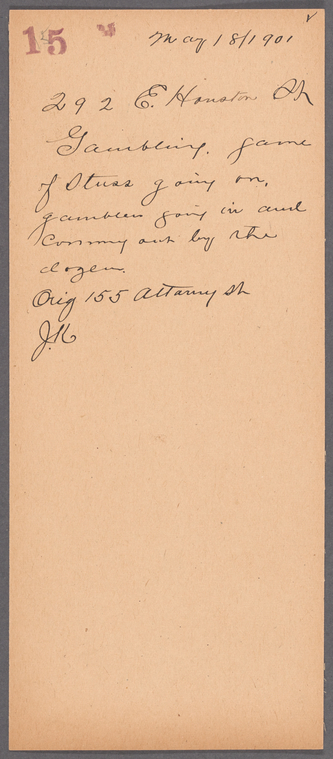 15
May 18/1901
292 E. Houston St
Gambling. game
of Stuss going on,
gamblers going in and
comming out by the
dozen.
Orig 155 Attorny St
J.K